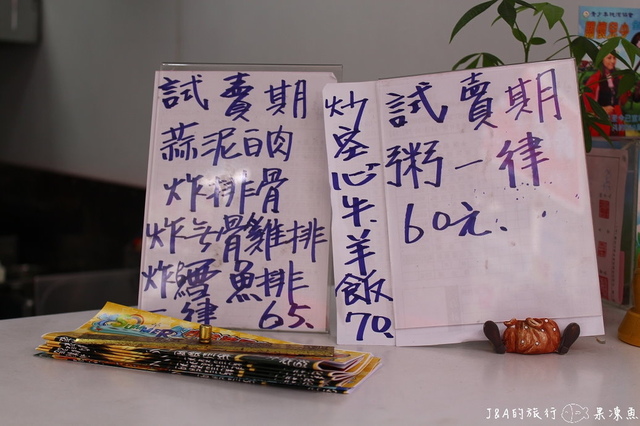 試賣期
蒜泥白肉
炸排骨
炸無骨雞排
炸鱈魚排
一律 65.
炒空心牛羊飯70.
試賣期
粥一律
60元.
J&A的旅行 果凍魚